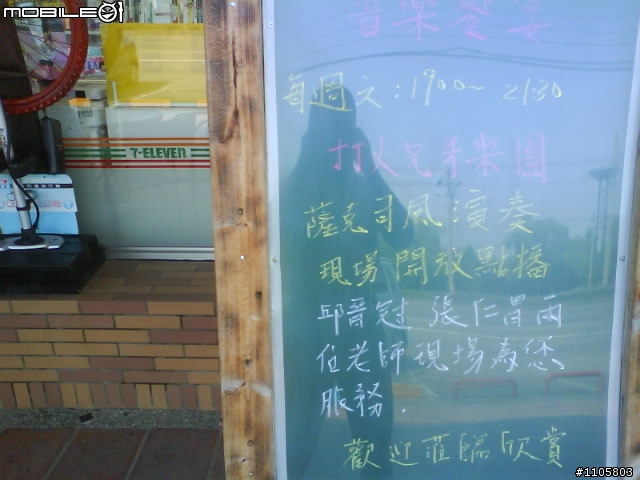 mobile01
音樂饗宴
7-ELEVEN
每週六:1900~21:30
打火兄弟樂團
薩克司風演奏
現場開放點播
邱晋冠 張仁昌兩
位老師現場為您
服務.
歡迎蒞臨欣賞
#1105803